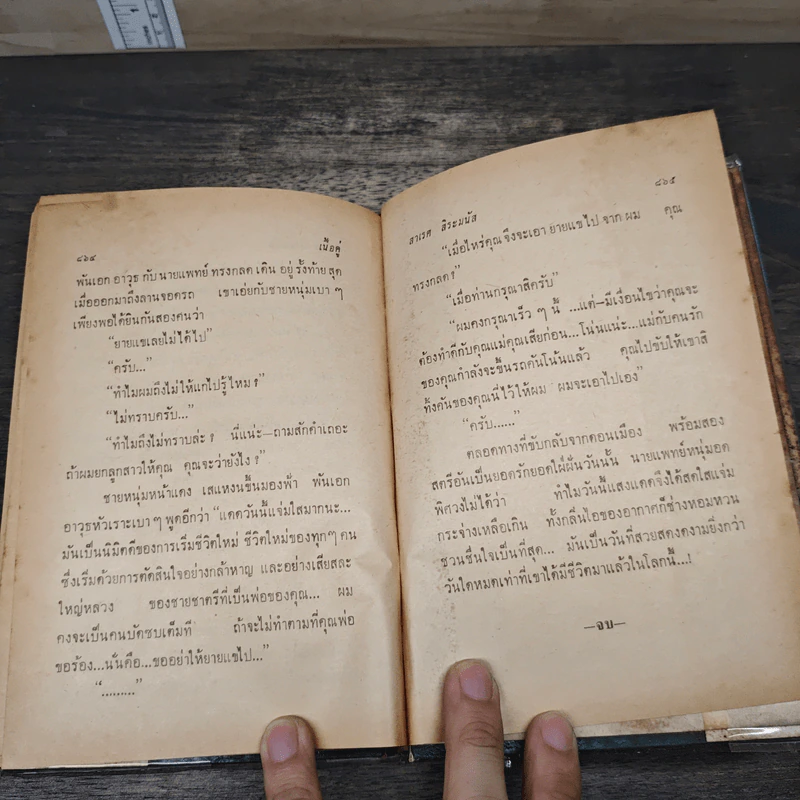 ๘๖๔ เนื้อคู่
พันเอก อาวุธ กับ นายแพทย์ ทรงกลด เดิน อยู่ รั้งท้าย สุด
เมื่อออกมาถึงลานจอดรถ เขาเอ่ยกับชายหนุ่มเบา ๆ
เพียงพอได้ยินกันสองคนว่า
“ยายแขเลยไม่ได้ไป”
“ครับ...”
“ทำไมผมถึงไม่ให้แกไปรู้ไหม ?”
“ไม่ทราบครับ...”
“ทำไมถึงไม่ทราบล่ะ ? นี่แน่ะ—ถามสักคำเถอะ
ถ้าผมยกลูกสาวให้คุณ คุณจะว่ายังไง ?”
ชายหนุ่มหน้าแดง เสแหงนขึ้นมองฟ้า พันเอก
อาวุธหัวเราะเบา ๆ พูดอีกว่า “แดดวันนี้แจ่มใสมากนะ...
มันเป็นนิมิตดีของการเริ่มชีวิตใหม่ ชีวิตใหม่ของทุกๆ คน
ซึ่งเริ่มด้วยการตัดสินใจอย่างกล้าหาญ และอย่างเสียสละ
ใหญ่หลวง ของชายชาตรีที่เป็นพ่อของคุณ... ผม
คงจะเป็นคนบัดซบเต็มที ถ้าจะไม่ทำตามที่คุณพ่อ
ขอร้อง...นั่นคือ...ขออย่าให้ยายแขไป...”
“.........”
ลาเรต ลิระมนัล ๘๖๕
“เมื่อไหร่คุณ จึงจะเอา ยายแขไป จาก ผม คุณ
ทรงกลด ?”
“เมื่อท่านกรุณาสิครับ”
“ผมคงกรุณาเร็ว ๆ นี้ ...แต่—มีเงื่อนไขว่าคุณจะ
ต้องทำดีกับคุณแม่คุณเสียก่อน...โน่นแน่ะ...แม่กับคนรัก
ของคุณกำลังจะขึ้นรถคันโน้นแล้ว คุณไปขับให้เขาสิ
ทิ้งคันของคุณนี่ไว้ให้ผม ผมจะเอาไปเอง”
“ครับ......”
ตลอดทางที่ขับกลับจากดอนเมือง พร้อมสอง
สตรีอันเป็นยอดรักยอดใฝ่ฝันวันนั้น นายแพทย์หนุ่มอด
พิศวงไม่ได้ว่า ทำไมวันนี้แสงแดดจึงได้สดใสแจ่ม
กระจ่างเหลือเกิน ทั้งกลิ่นไอของอากาศก็ช่างหอมหวน
ชวนชื่นใจเป็นที่สุด... มันเป็นวันที่สวยสดงดงามยิ่งกว่า
วันใดหมดเท่าที่เขาได้มีชีวิตมาแล้วในโลกนี้...!
—จบ—